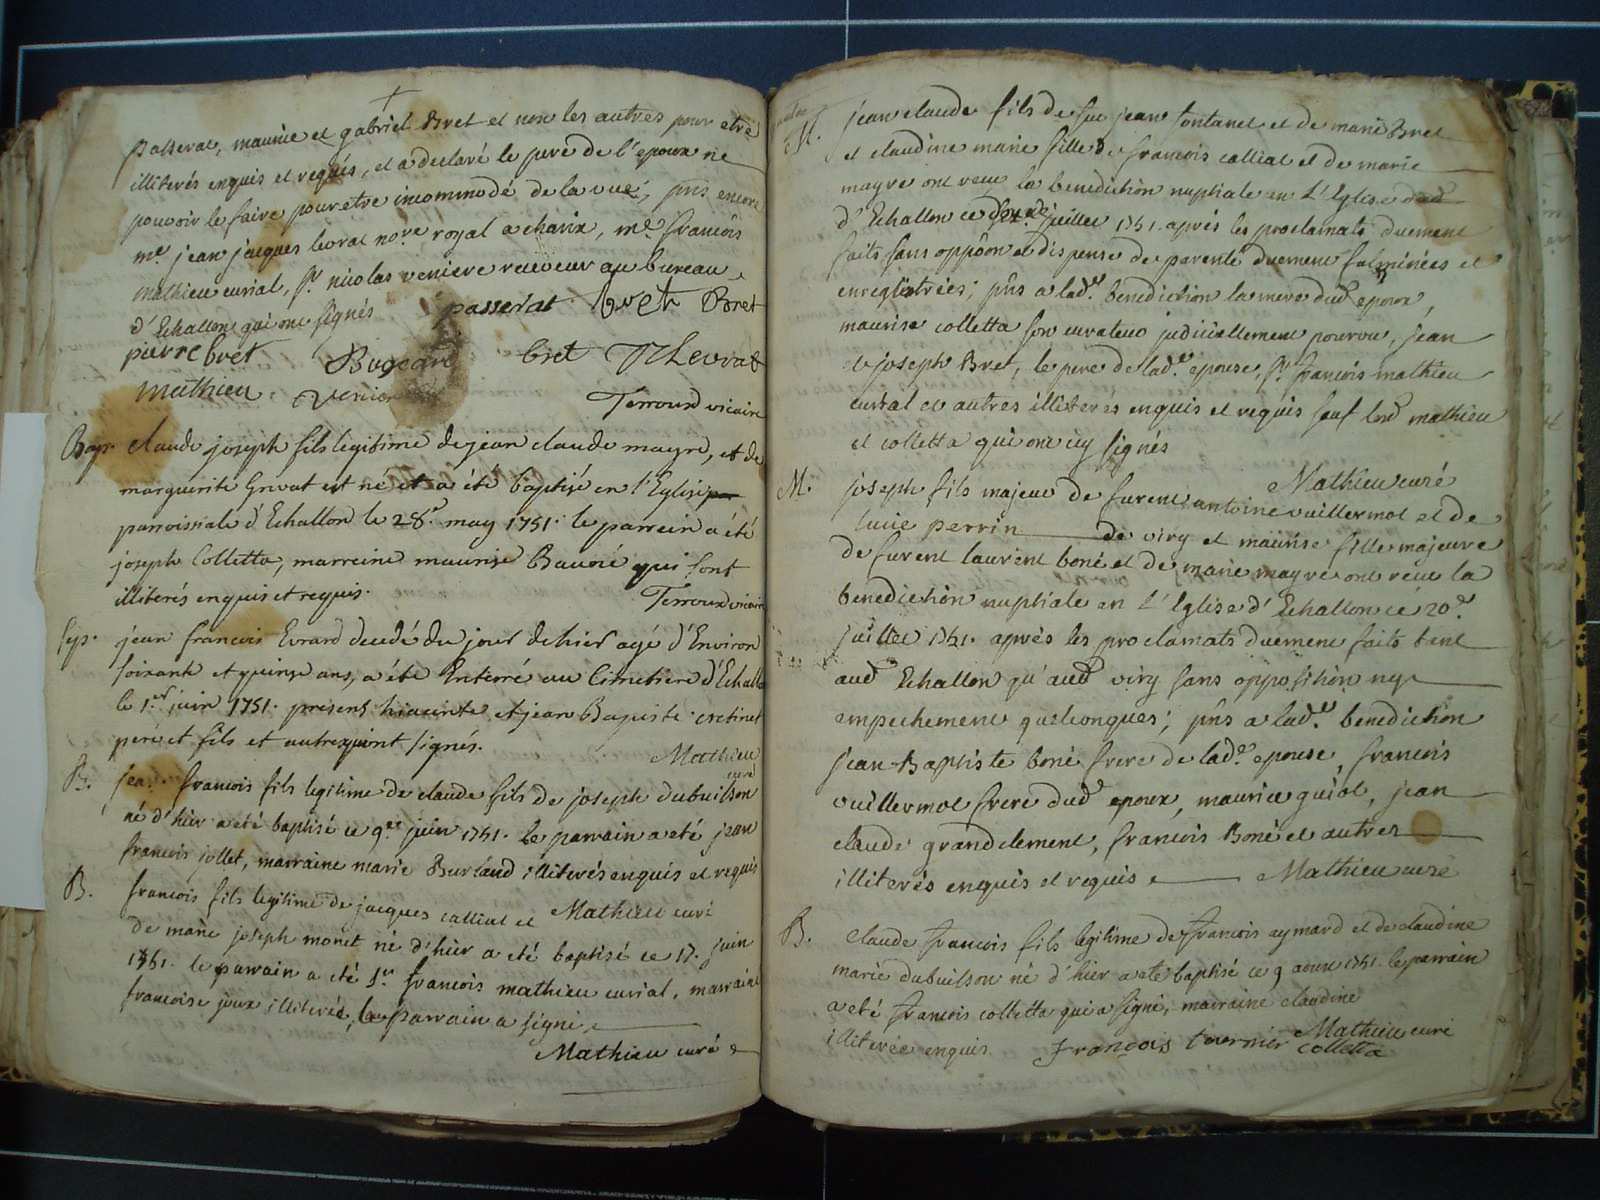 passerat, maurice et gabriel Bret et non les autres pour etre
illiterés enquis et requis, et a declaré le pere de l'epoux ne
pouvoir le faire pour etre incommodé de la vue; pns encore
me jean jacques levrat nore royal a charix, me francois
mathieu curial, sr nicolas veniere receveur au bureau
d'Echallon qui ont signés passerat bret Bret
pierre bret bret Levrat
mathieu
Terroux vicaire
Bap. claude joseph fils legitime de jean claude mayre, et de
marguerite Grivat est né et a été baptisé en l'Eglise
parroissiale d'Echallon le 28e may 1751. le parrein a été
joseph Colletta, marreine maurise qui sont
illiterés enquis et requis. Terroux vicaire
Sep. jean francois Evrard decedé du jour de hier agé d'Environ
soixante et quinze ans, a été Enterré au Cimetiere d'Echallon
le 1er juin 1751. presens hiacinte et jean Baptiste cretinet
pere et fils et autres signés.
Mathieu curé
B. jean francois fils legitime de claude fils de joseph dubuisson
né d'hier a eté baptisé ce 9e juin 1751. le parrain a eté jean
francois jollet, marraine marie Burland illiterés enquis et requis
Mathieu curé
B. francois fils legitime de jacques calliat et
de marie joseph monet né d'hier a eté baptisé ce 17. juin
1751. le parrain a eté sr francois mathieu curial, marraine
francoise joux illiterée, le parrain a signé
Mathieu curé
M. jean claude fils de feu jean fontanet et de marie Bret
et claudine marie fille de francois calliat et de marie
mayre ont receu la benediction nuptiale en l'Eglise
d'Echallon ce juillet 1751. aprés les proclamats duement
faits sans oppôon et dispense de parenté duement fulminées et
enregistrées; pns a lade benediction la mere dud epoux,
maurise colletta son curateur judiciallement pourvu, jean
et joseph Bret, le pere de lade epouse, sr francois mathieu
curial et autres illiterés enquis et requis sauf led mathieu
et colletta qui ont icy signés
Mathieu curé
M. joseph fils majeur de furent antoine vuillermot et de
lucie perrin de viry et maurise fille majeure
de furent laurent boné et de marie mayre ont receu la
benediction nuptiale en l'Eglise d'Echallon ce 20e
juillet 1751. aprés les proclamats duement faits tant
aud Echallon qu'aud viry sans opposition ny
empechement quelconques; pns a lade benediction
jean Baptiste boné frere de lade epouse, francois
vuillermot frere dud epoux, maurice guiot, jean
claude grandclement, francois Boné et autres
illiterés enquis et requis Mathieu curé
B. claude francois fils legitime de francois aymard et de claudine
marie dubuisson né d'hier a eté baptisé ce 9 aoust 1751. le parrain
a eté francois colletta qui a signé, marraine claudine
illiterée enquis francois tournier colletta
Mathieu curé